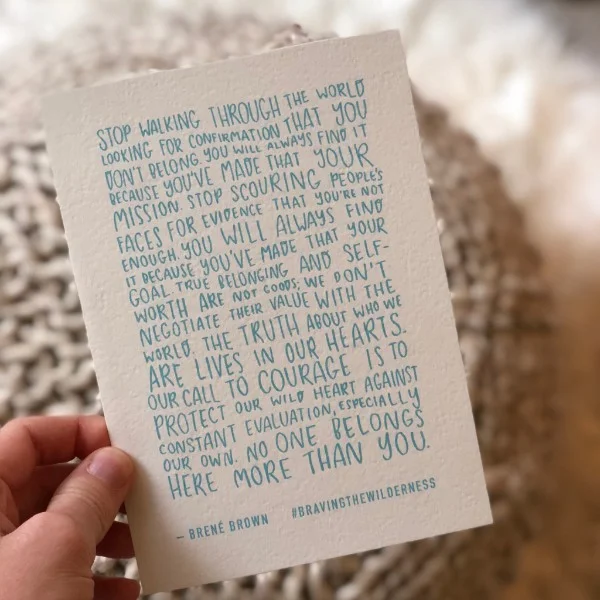 STOP WALKING THROUGH THE WORLD
LOOKING FOR CONFIRMATION THAT YOU
DON'T BELONG. YOU WILL ALWAYS FIND IT
BECAUSE YOU'VE MADE THAT YOUR
MISSION. STOP SCOURING PEOPLE'S
FACES FOR EVIDENCE THAT YOU'RE NOT
ENOUGH. YOU WILL ALWAYS FIND
IT BECAUSE YOU'VE MADE THAT YOUR
GOAL. TRUE BELONGING AND SELF-
WORTH ARE NOT GOODS; WE DON'T
NEGOTIATE THEIR VALUE WITH THE
WORLD. THE TRUTH ABOUT WHO WE
ARE LIVES IN OUR HEARTS.
OUR CALL TO COURAGE IS TO
PROTECT OUR WILD HEART AGAINST
CONSTANT EVALUATION, ESPECIALLY
OUR OWN. NO ONE BELONGS
HERE MORE THAN YOU.
— BRENÉ BROWN #BRAVINGTHEWILDERNESS